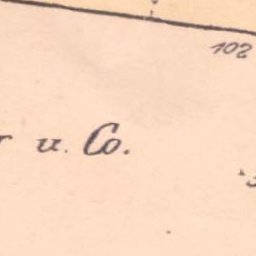 102
u. Co.